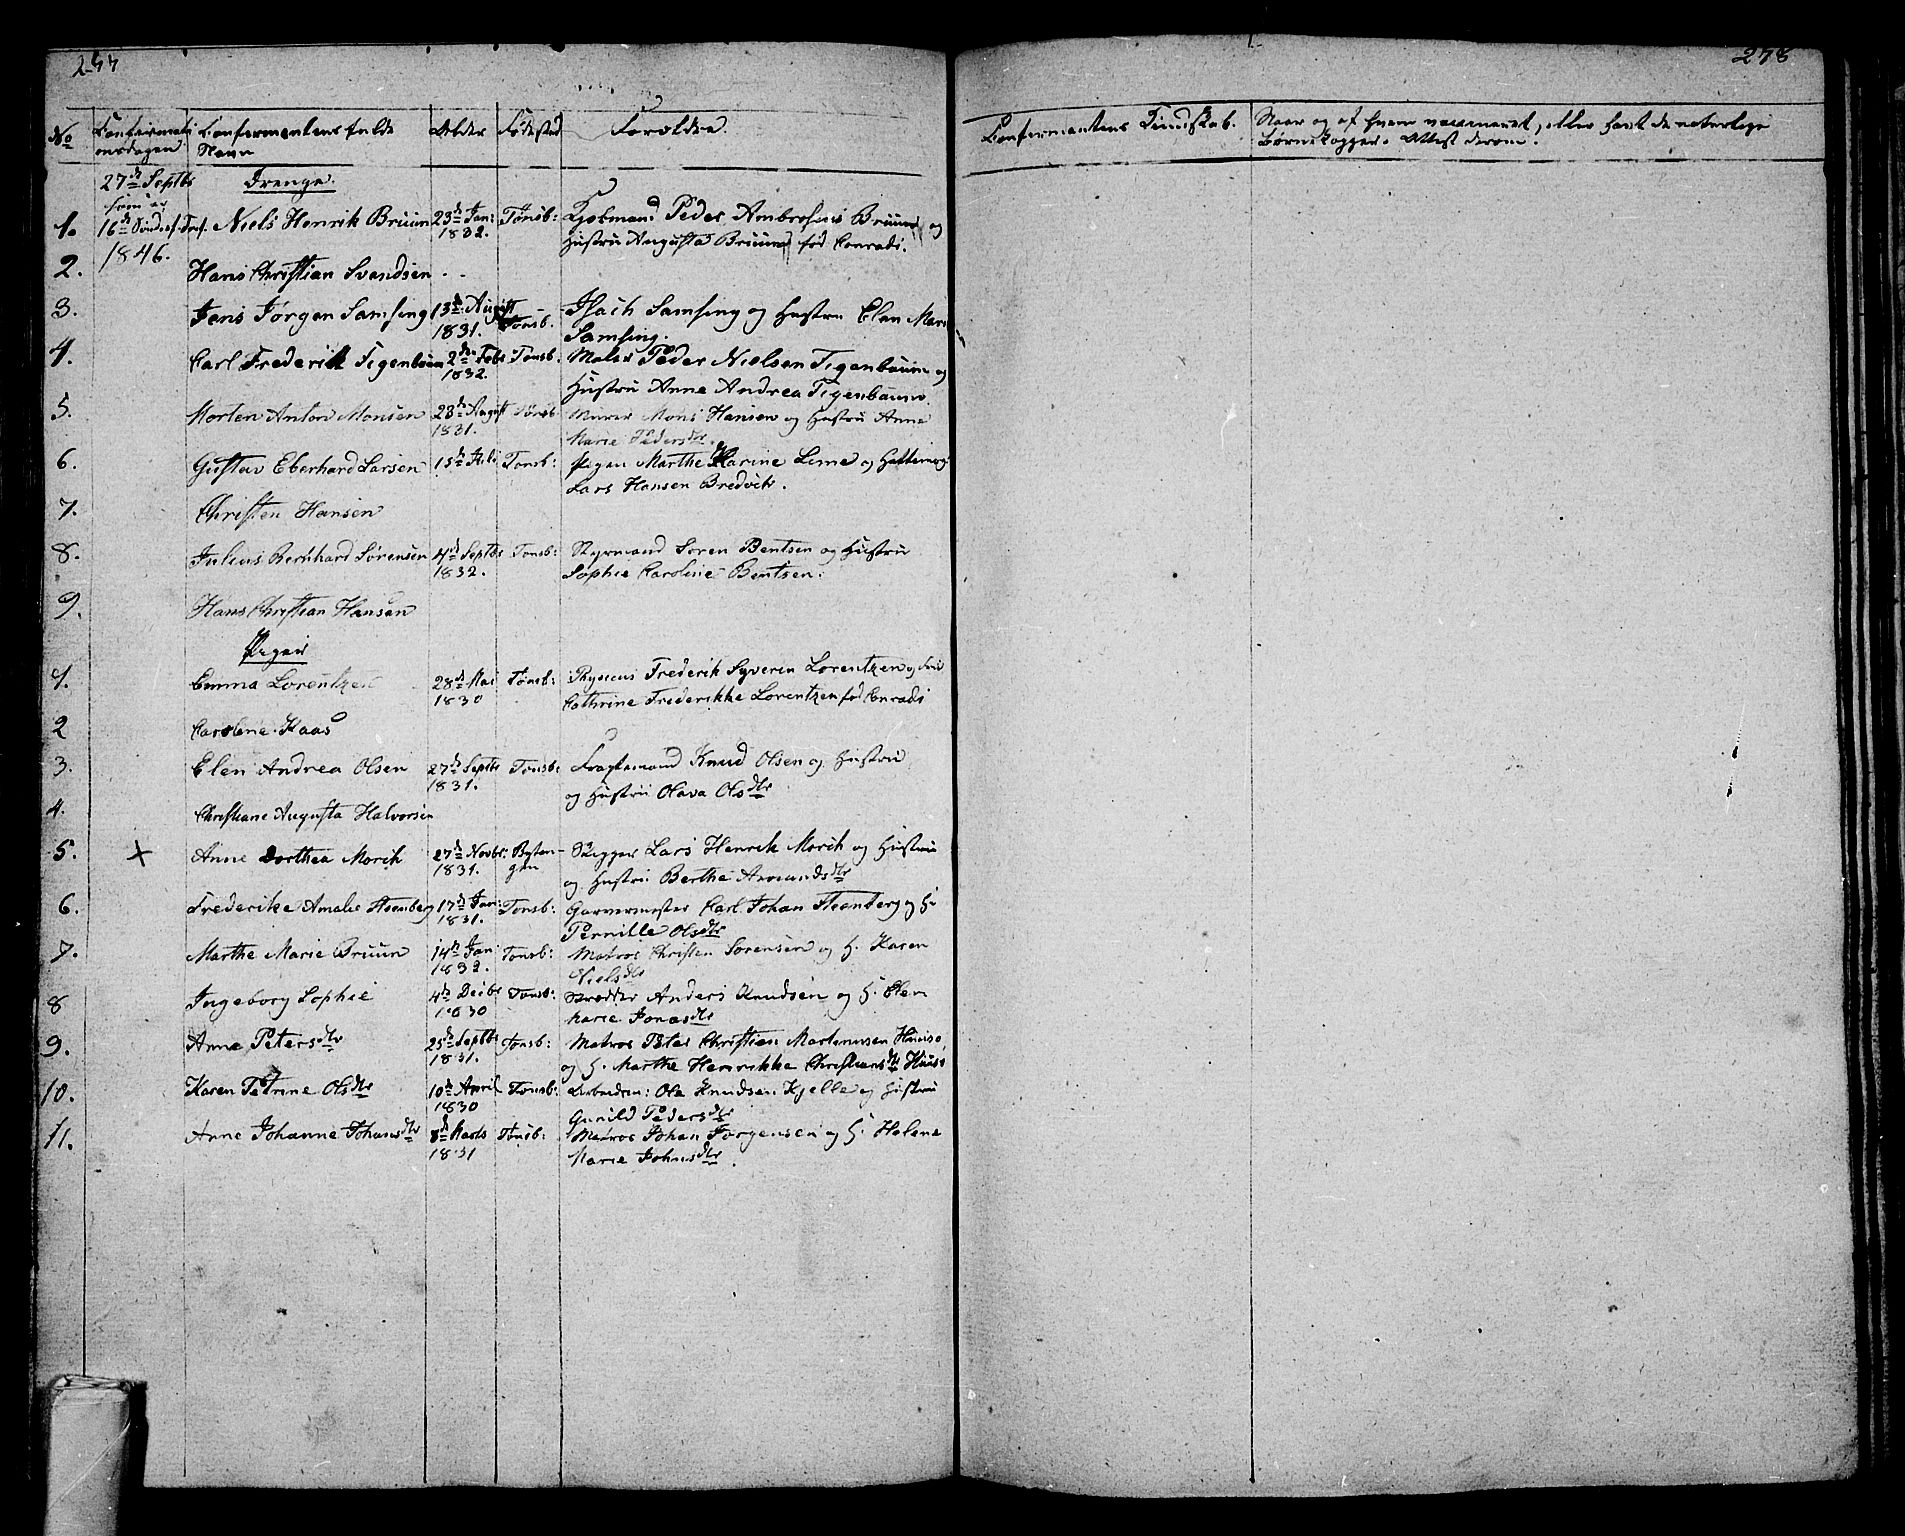 277
278
No
Confirmati
onsdagen
Confirmentens fulde
Navn
Alder
Fødested
Forældre.
Confirmantens Kundskab.
Naar og af hvem vaccineret, eller havt de naturlige
Børnekopper. Attest derom.
27de Septbr
som var
16de Søndag f. Tref.
1846.
Drenge
1. Niels Henrik Bruun 23de Jan: 1832. Tønsb: Kjøbmand Peder Ambrosius Bruun og
Hustru Augusta Bruun fød Conradi.
2. Hans Christian Svandsen - -
3. Jens Jørgen Samsing 13de August 1831. Tønsb. Isach Samsing og Hustru Elen Mari
Samsing.
4. Carl Frederik Tigenbaum 2den Febr 1832. Tønsb. Maler Peder Nielsen Tigenbaum og
Hustru Anne Andrea Tigenbaum.
5. Morten Anton Monsen 28de August 1831. Tønsb. Murer Mons Hansen og Hustru Anne
Marie Pedersdtr.
6. Gustav Eberhard Larsen 15de Tønsb: Pigen Marthe Karine Leme og
Lars Hansen Bredvik.
7. Christen Hansen
8. Julius Bernhard Sørensen 4de Septbr 1832. Tønsb: Styrmand Søren Bentsen og Hustru
Sophie Caroline Bentsen.
9. Hans Christian Hansen
Piger
1. Emma Lorentzen 28de Mai 1830 Tønsb: Physicus Frederik Syverin Lorentzen og Fru
Cathrine Frederikke Lorentzen fød Conradi
2 Caroline Haas
3. Elen Andrea Olsen 27de Septbr 1831. Tønsb: Fragtemand Knud Olsen og Hustru
og Hustru Olava Olsdtr
4. Christiane Augusta Halvorsen
5. × Anne Dorthea Morch 27de Novbr: 1831. Byten-
gen Skipper Lars Henrik Morch og Hustru
og Hustru Berthe Amundsdtr
6. Frederike Amalie Steenberg 17de Jan: 1831. Tønsb: Garvermester Carl Johan Steenberg og H:
Pernille Olsdtr
7. Marthe Marie Bruun 14de Jan: 1832. Tønsb: Matros Christen Sørensen og H. Karen
Nielsdtr
8 Ingeborg Sophie 4de Decbr 1830 Tønsb: Skrædder Anders Knudsen og H. Elen
Marie Jonasdtr
9. Anne Petersdtr 25de Septbr 1831. Tønsb: Matros Peter Christian Martinussen
og H. Marthe Henrikke Christiansdtr
10. Karen Petrine Olsdtr 10de April 1830 Tønsb: Arbeidsm: Ole Knudsen Kjelle og Hustru
Gunild Pedersdtr
11. Anne Johanne Johansdtr 8de Marts 1831 Tønsb: Matros Johan Jørgensen og H. Helene
Marie Johnsdtr.